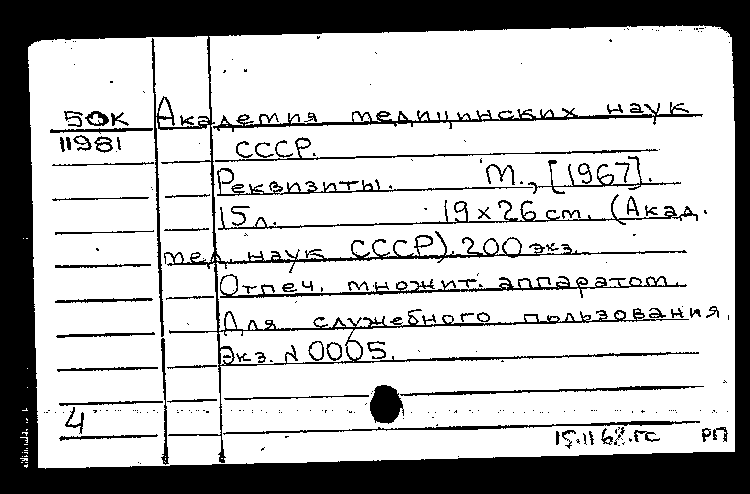 50К Академия медицинских наук
11981 СССР.
Реквизиты. М., [1967].
15 л. 19 х 26 см. (Акад.
мед. наук СССР). 200 экз.
Отпеч. множит. аппаратом.
Для служебного пользования.
Экз. N 0005.
4
15.11 68. гс РП